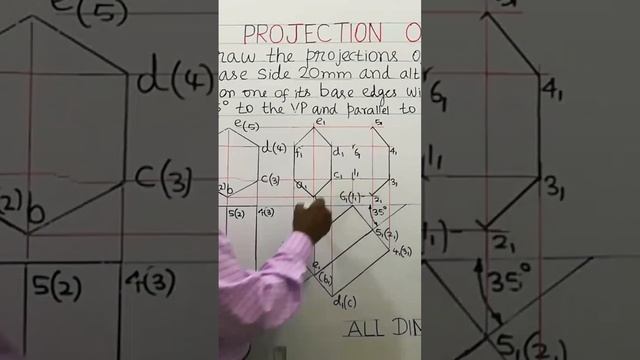 PROJECTION O
raw the projections o
ase side 20mm and alt
on one of its base edges wi
5° to the VP and parallel to
e(5)
d(4)
c(3)
2) b
5(2) 4(3)
e(5)
d(4)
c(3)
b
5(2) 4(3)
e₁
f₁ d₁
a₁ c₁
5₁
6₁ 4₁
1₁ 3₁
2₁
6₁(1₁)
35°
5₁(2₁)
4₁(3₁)
e₁(b₁)
d₁(c)
ALL DIM
5₁
6₁ 4₁
1₁ 3₁
1₁) 2₁
35°
5₁(2₁)